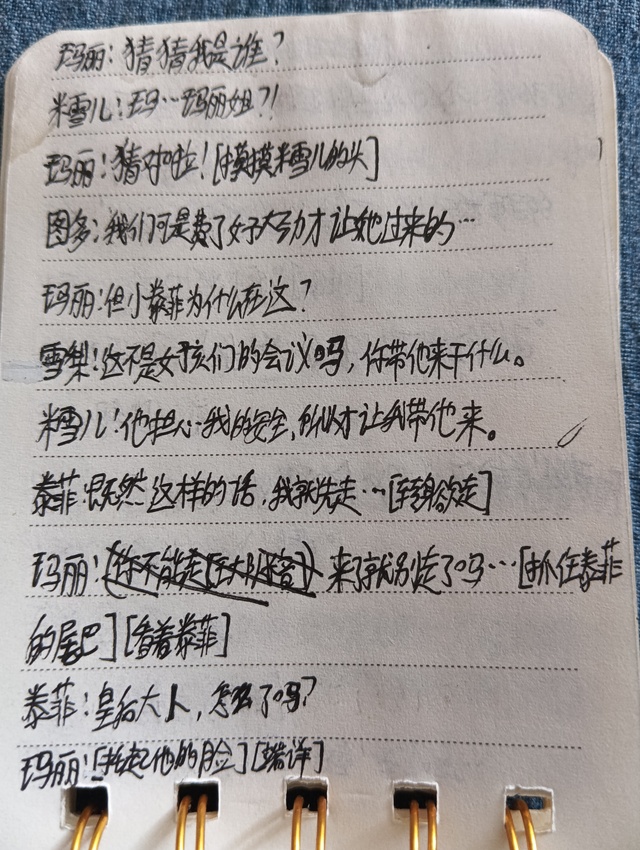 玛丽：猜猜我是谁？
米雪儿：玛…玛丽姐？！
玛丽：猜对啦！[摸摸米雪儿的头]
图多：我们可是费了好大劲才让她过来的…
玛丽：但小泰菲为什么在这？
雪梨：这不是女孩们的会议吗，你带他来干什么。
米雪儿：他担心我的安全，所以才让我带他来。
泰菲：既然这样的话，我就先走…[转身欲走]
玛丽：来了就别走了吗…[抓住泰菲
的尾巴][看着泰菲]
泰菲：皇后大人，怎么了吗？
玛丽：[托起他的脸][端详]